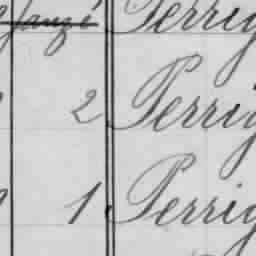 Janzé Perrig
2 Perrig
1 Perrig